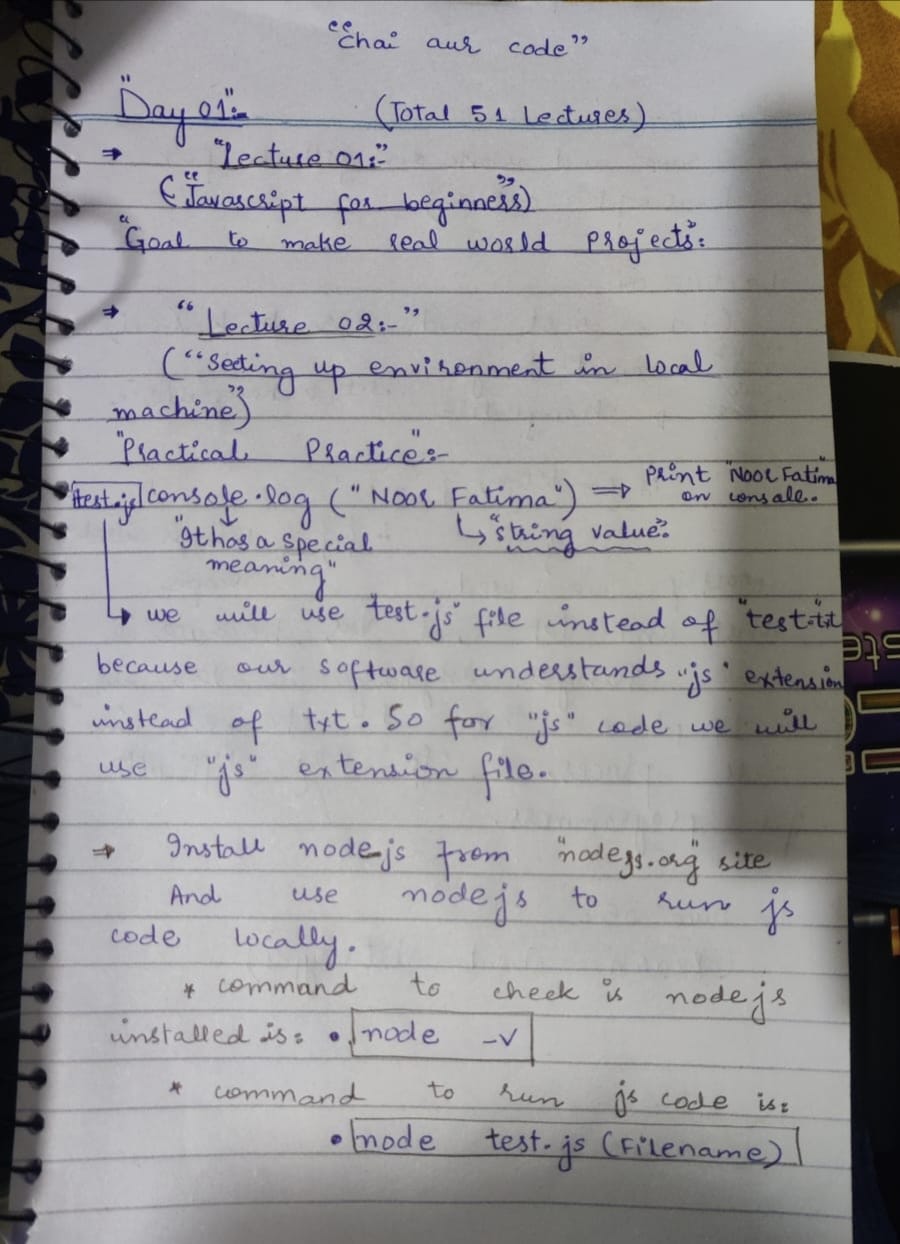 "Chai aur code"
"Day 01":- (Total 51 Lectures)
⇒ "Lecture 01:-"
("Javascript for beginners")
"Goal to make real world projects":
⇒ "Lecture 02:-"
("Seeting up environment in local
machine")
"Practical Practice":-
test.js console.log ("Noor Fatima") ⇒ print "Noor Fatima
on consale.
"It has a special
meaning"
↳ "string value".
↳ we will use test.js" file instead of "test.txt
because our software understands "js" extension
instead of txt. So for "js" code we will
use "js" extension file.
⇒ Install nodejs from "nodejs.org" site
And use nodejs to run js
code locally.
* command to check is nodejs
installed is: • node -v
* command to run js code is:
• node test.js (Filename)